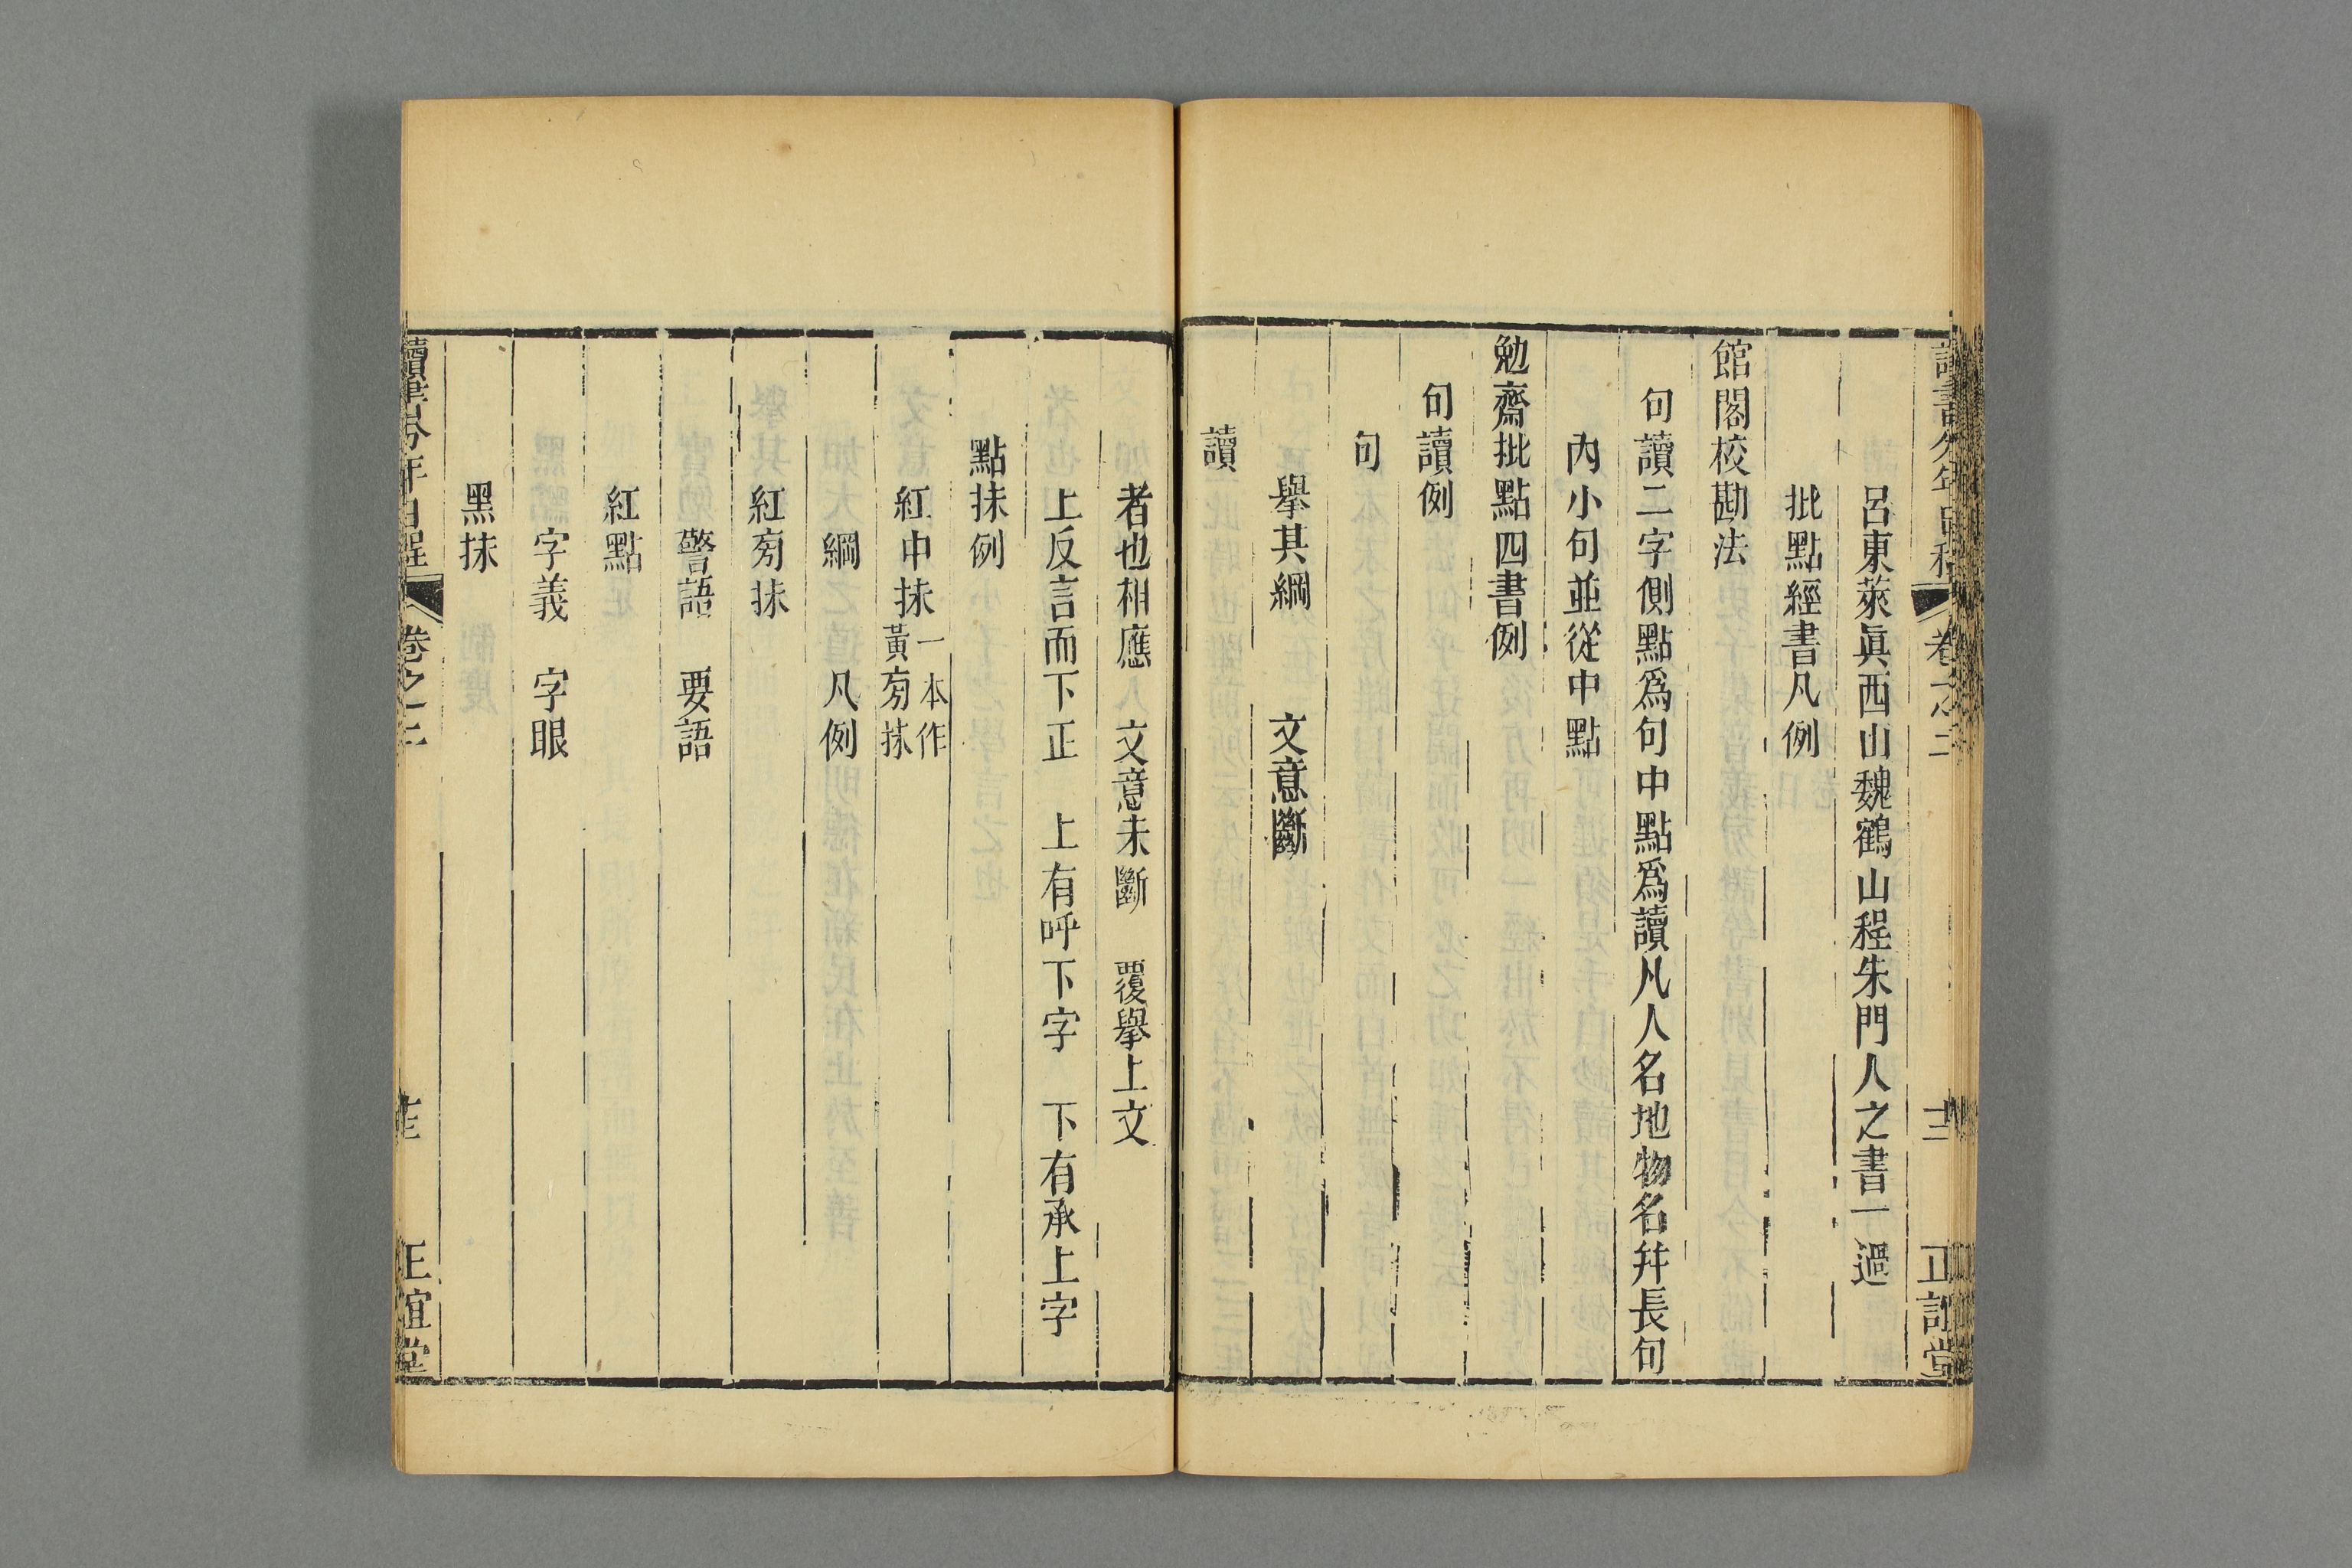 呂東萊眞西山魏鶴山程朱門人之書一過
批點經書凡例
館閣校勘法
句讀二字側點爲句中點爲讀凡人名地物名幷長句
內小句並從中點
勉齋批點四書例
句讀例
句
擧其綱　文意斷
讀
者也相應　文意未斷　覆擧上文
上反言而下正　上有呼下字　下有承上字
點抹例
紅中抹一本作黃旁抹
綱　凡例
紅旁抹
警語　要語
紅點
字義　字眼
黑抹
讀書分年日程　卷之二　正誼堂